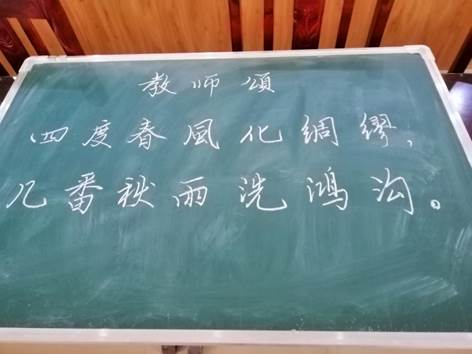 教师頌
四度春風化绸缪,
几番秋雨洗鸿沟。